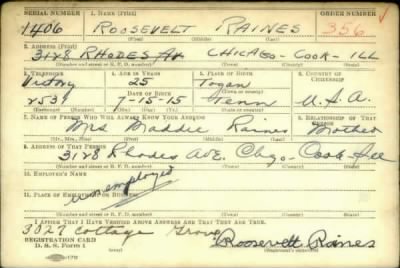 SERIAL NUMBER 1. NAME (Print) ORDER NUMBER
1406 ROOSEVELT RAINES 356
(First) (Middle) (Last)
2. ADDRESS (Print)
3128 RHODES AV CHICAGO - COOK - ILL
(Number and street or R. F. D. number) (Town) (County) (State)
3. TELEPHONE 4. AGE IN YEARS 5. PLACE OF BIRTH 6. COUNTRY OF CITIZENSHIP
Victory 25 Togan
DATE OF BIRTH
2539 7-15-15 Tenn U.S.A.
7. NAME OF PERSON WHO WILL ALWAYS KNOW YOUR ADDRESS 8. RELATIONSHIP OF THAT PERSON
Mrs Maddie Raines Mother
(Mr., Mrs., Miss) (First) (Middle) (Last)
9. ADDRESS OF THAT PERSON
3128 Rhodes AvE. Chgo. Cook Ill
(Number and street or R. F. D. number) (Town) (County) (State)
10. EMPLOYER'S NAME
unemployed
11. PLACE OF EMPLOYMENT OR BUSINESS
(Number and street or R. F. D. number) (Town) (County) (State)
I AFFIRM THAT I HAVE VERIFIED ABOVE ANSWERS AND THAT THEY ARE TRUE.
3027 Cottage Grove Roosevelt Raines
REGISTRATION CARD
D. S. S. Form 1